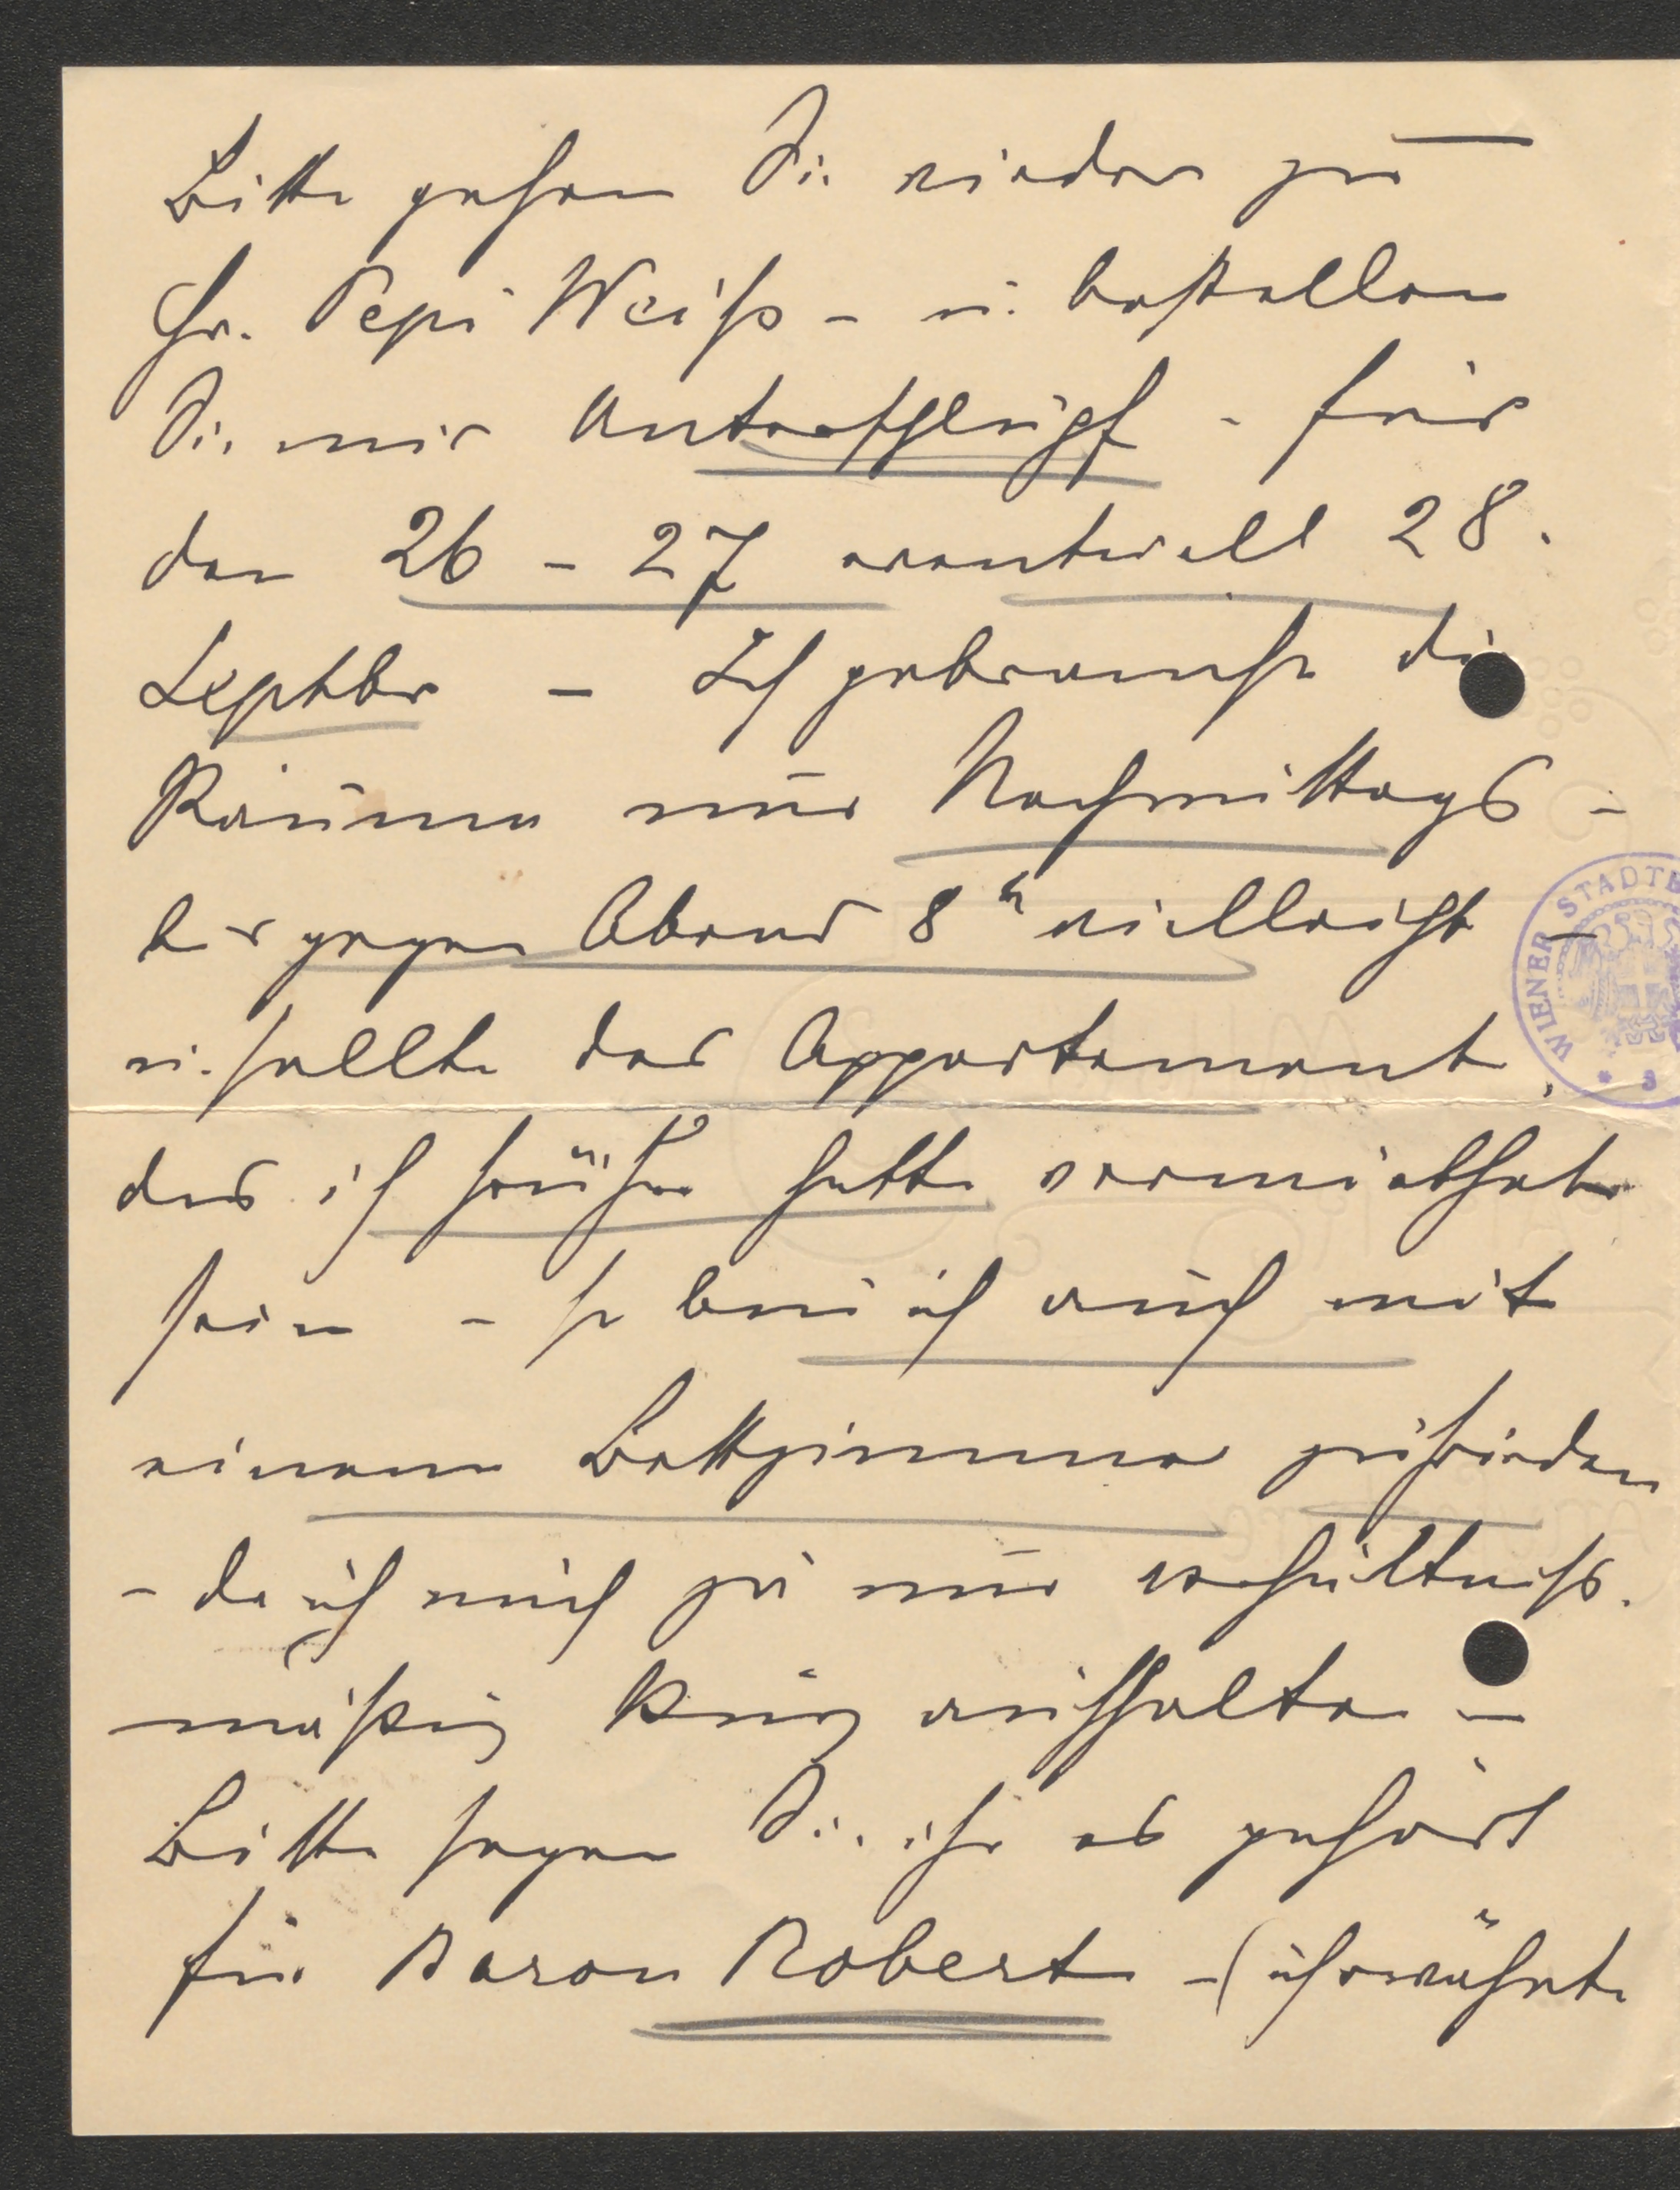 Bitte gehen Sie wieder zu
Fr. Pepi Weiß – u. bestellen
Sie mir Unterschlupf – für
den 26 – 27 eventuell 28.
Septbr – Ich gebrauche die
Räume nur Nachmittags –
bis gegen Abend 8 h vielleicht –
u. sollte das Appartement,
das ich früher hatte vermiethet
sein – so bin ich auch mit
einem Bettzimmer zufrieden
– da ich mich ja nur verhältniß.
mäßig kurz aufhalte –
Bitte sagen Sie ihr es gehört
für Baron Robert – (ich erwähnte
WIENER STADTB